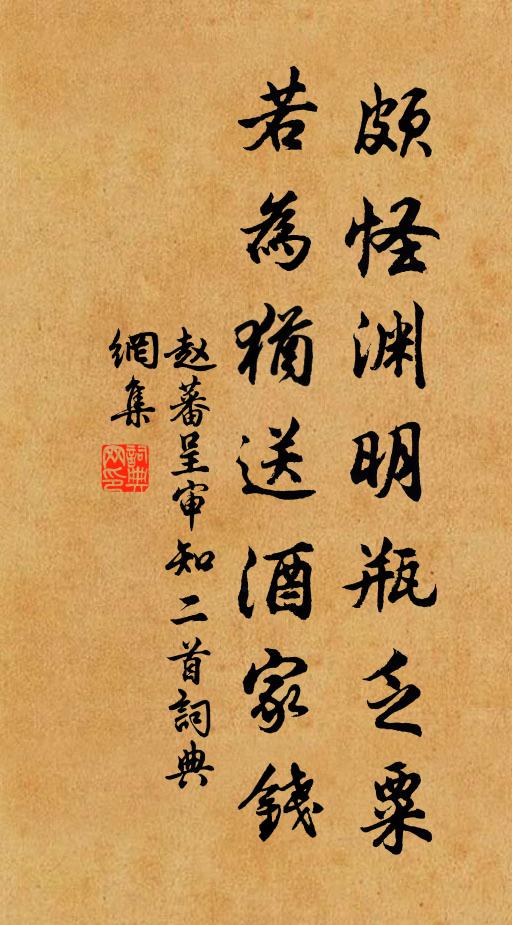 頗怪渊明瓶乏粟
若為猶送酒家錢
赵蕃呈审知二首詞典
網集
詞典網印